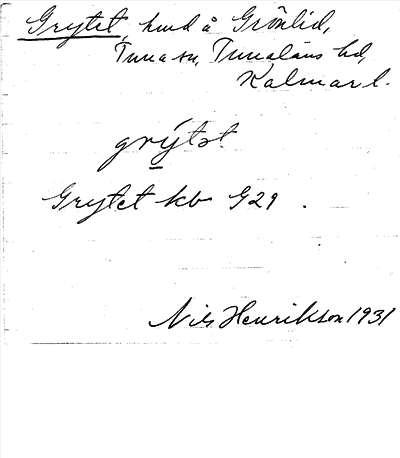 Grytet, hmd å Grönlid,
Tuna sn, Tunaläns hd,
Kalmar l.
grýtət
Grytet kb G29.
Nils Henrikson 1931